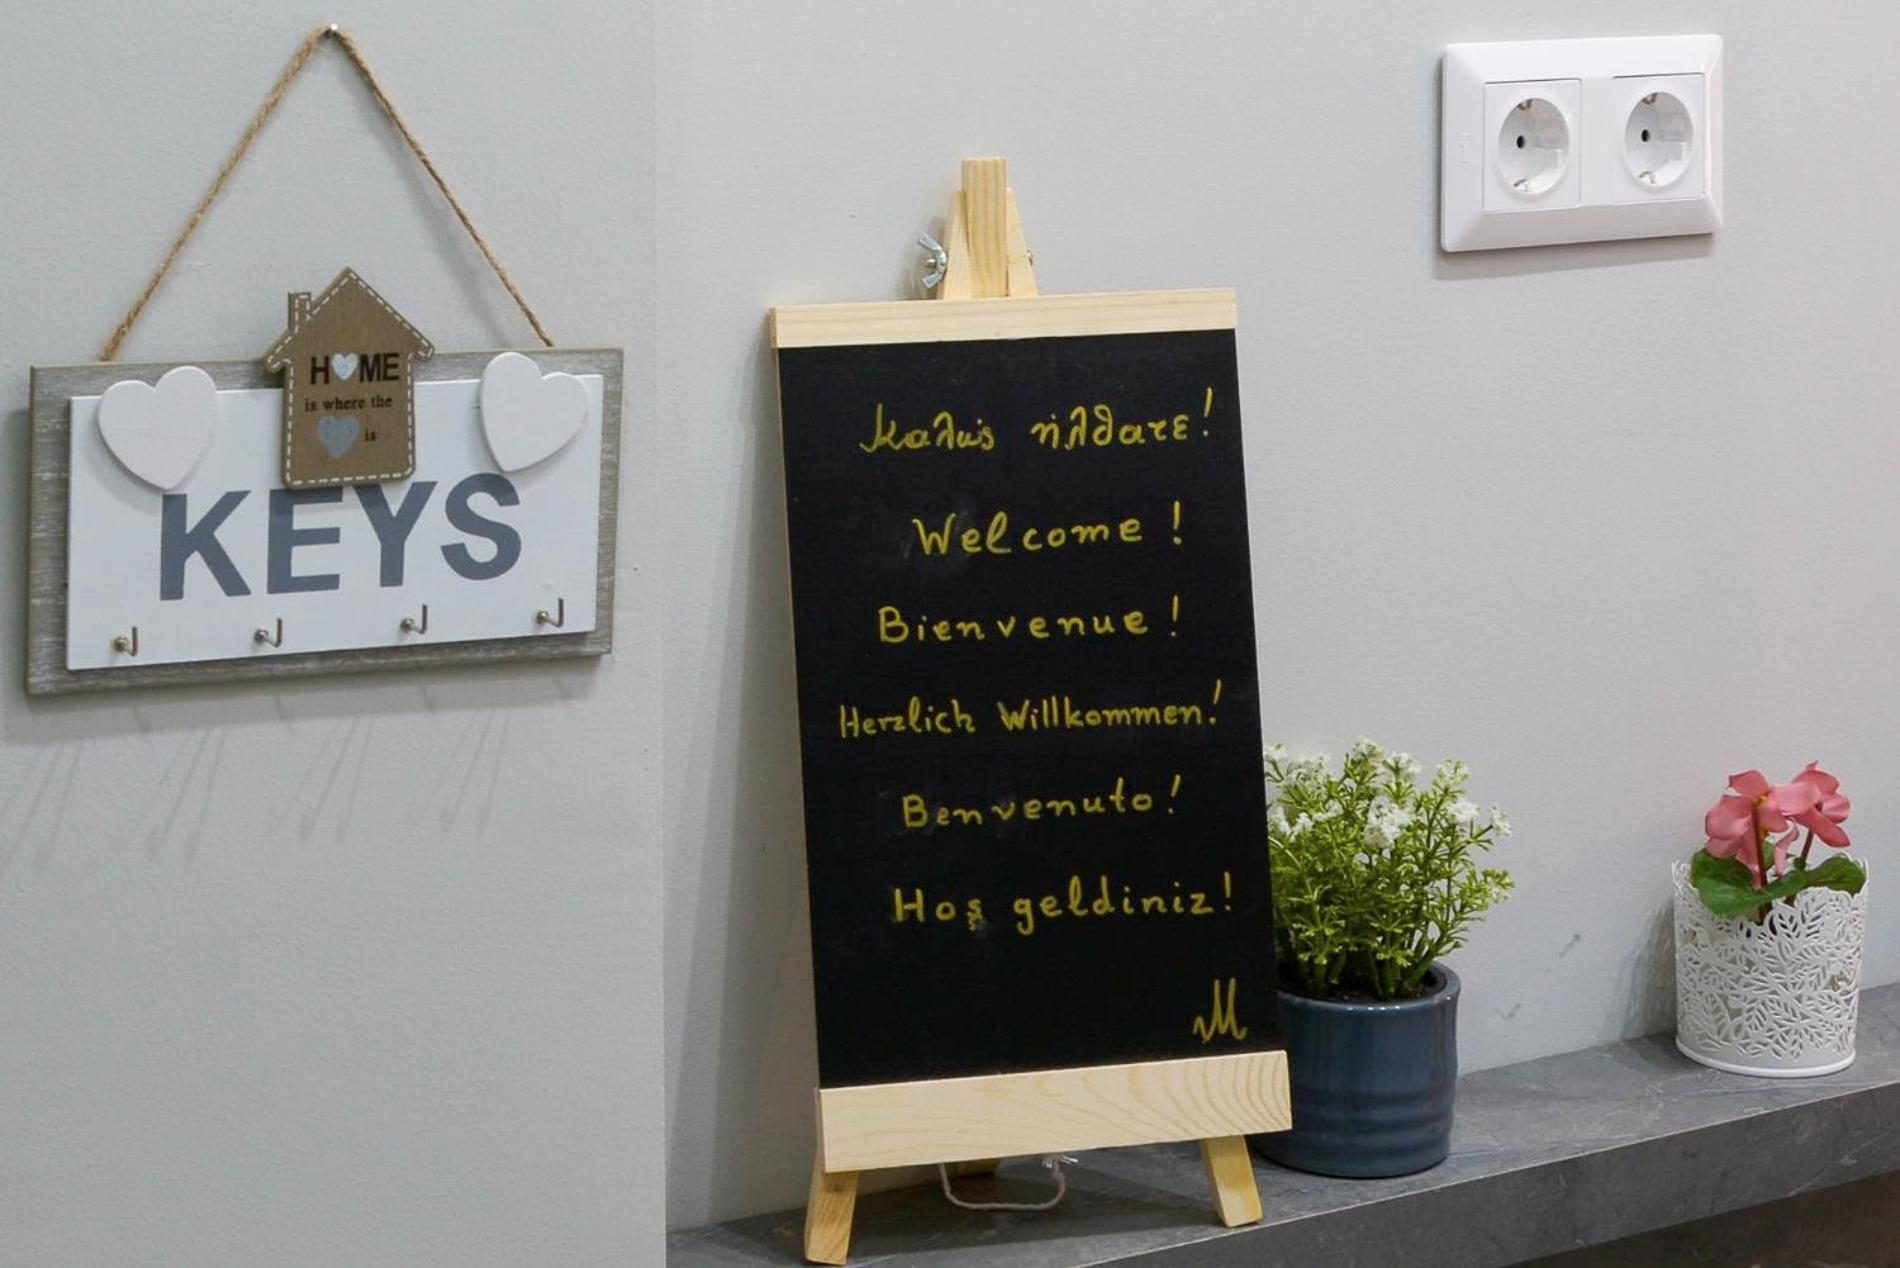 H♥ME
is where the
♥ is
KEYS
Καλώς ήλθατε!
Welcome!
Bienvenue!
Herzlich Willkommen!
Benvenuto!
Hoş geldiniz!
M